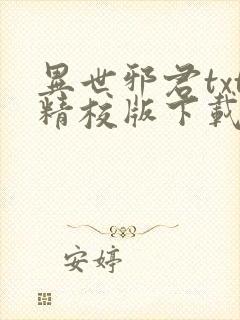 異世邪君txt
精校版下載
安婷